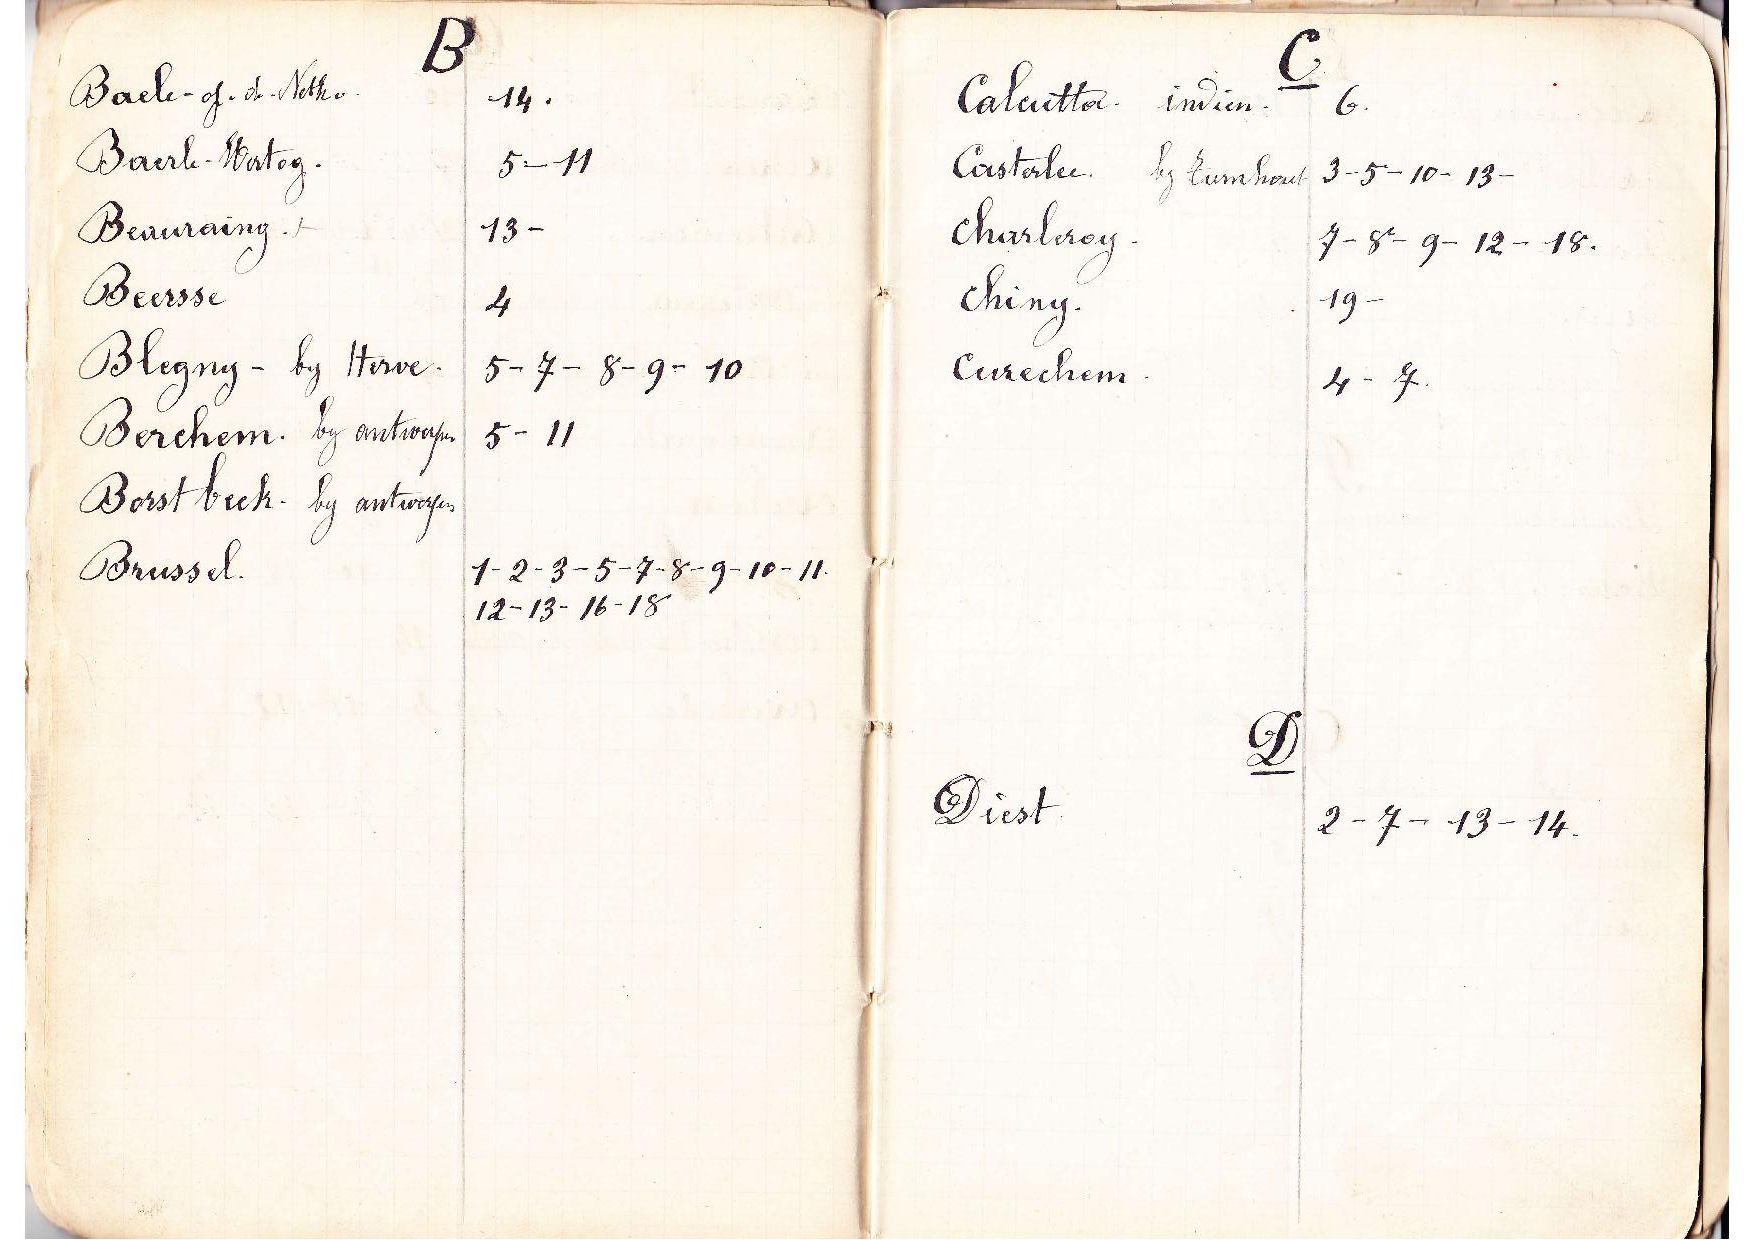 B
Baele-op-d-Nethe. 14.
Baerle-Hertog. 5-11
Beauraing. + 13-
Beersse 4
Blegny- by Herve. 5-7-8-9-10
Berchem. by antwerpen 5-11
Borstbeek. by antwerpen
Brussel. 1-2-3-5-7-8-9-10-11.
12-13-16-18
C
Calcutta. indien. 6.
Casterlee. by turnhout 3-5-10-13-
Charleroy. 7-8-9-12-18.
Chiny. 19-
Curechem. 4-7.
D
Diest 2-7-13-14.